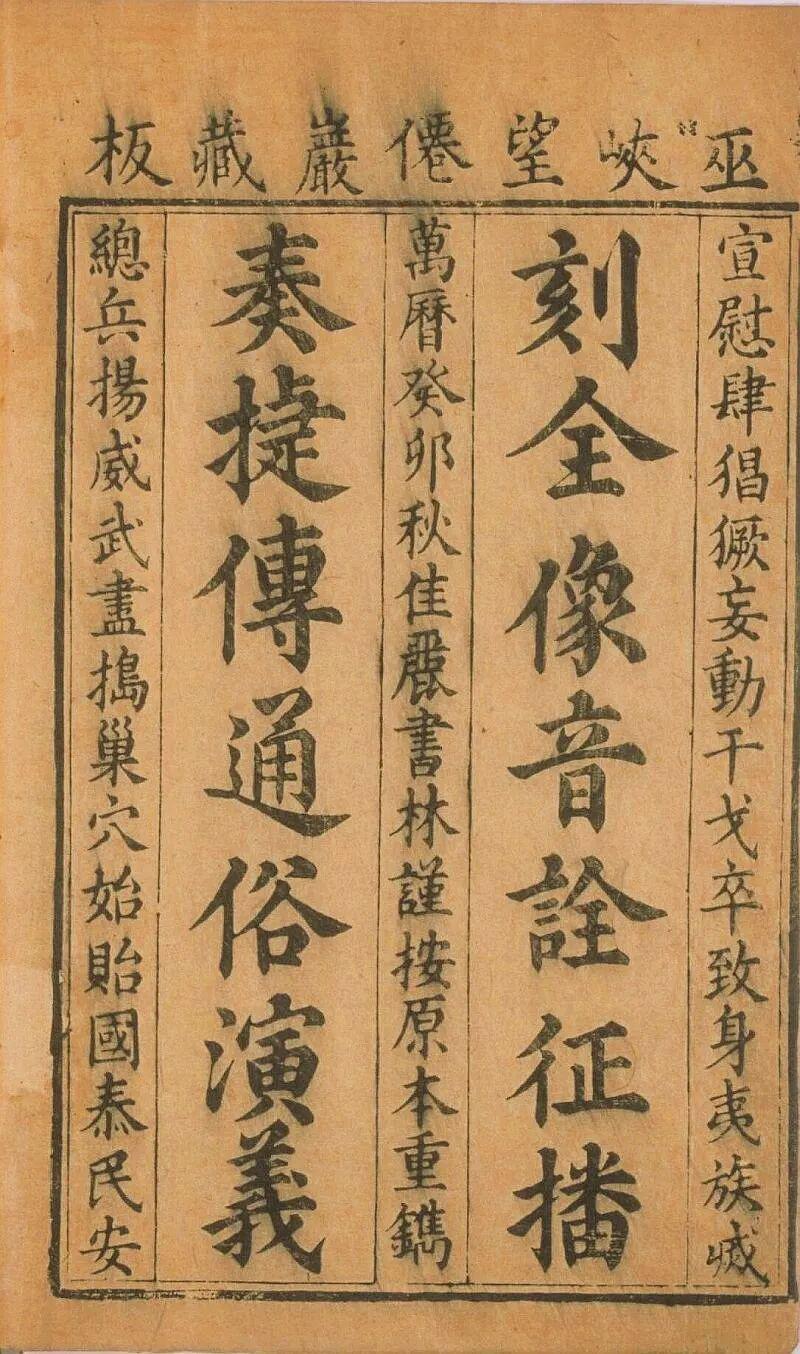 巫峽望僊巖藏板
宣慰肆猖獗妄動干戈卒致身夷族滅
刻全像音詮征播
萬曆癸卯秋佳麗書林謹按原本重鐫
奏捷傳通俗演義
總兵揚威武盡搗巢穴始貽國泰民安